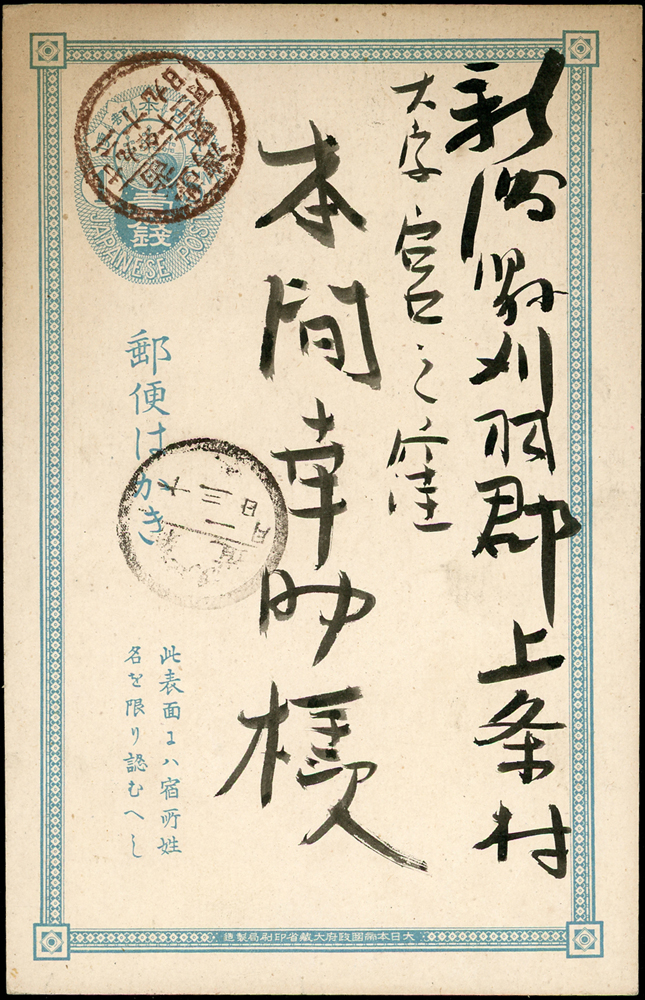 新潟縣刈羽郡上条村
大字宮之窪
本間幸助様
壹錢
JAPANESE POST
郵便はかき
此表面ヱハ宿所姓
名を限り認むへし
大日本帝國政府大藏省印刷局製造